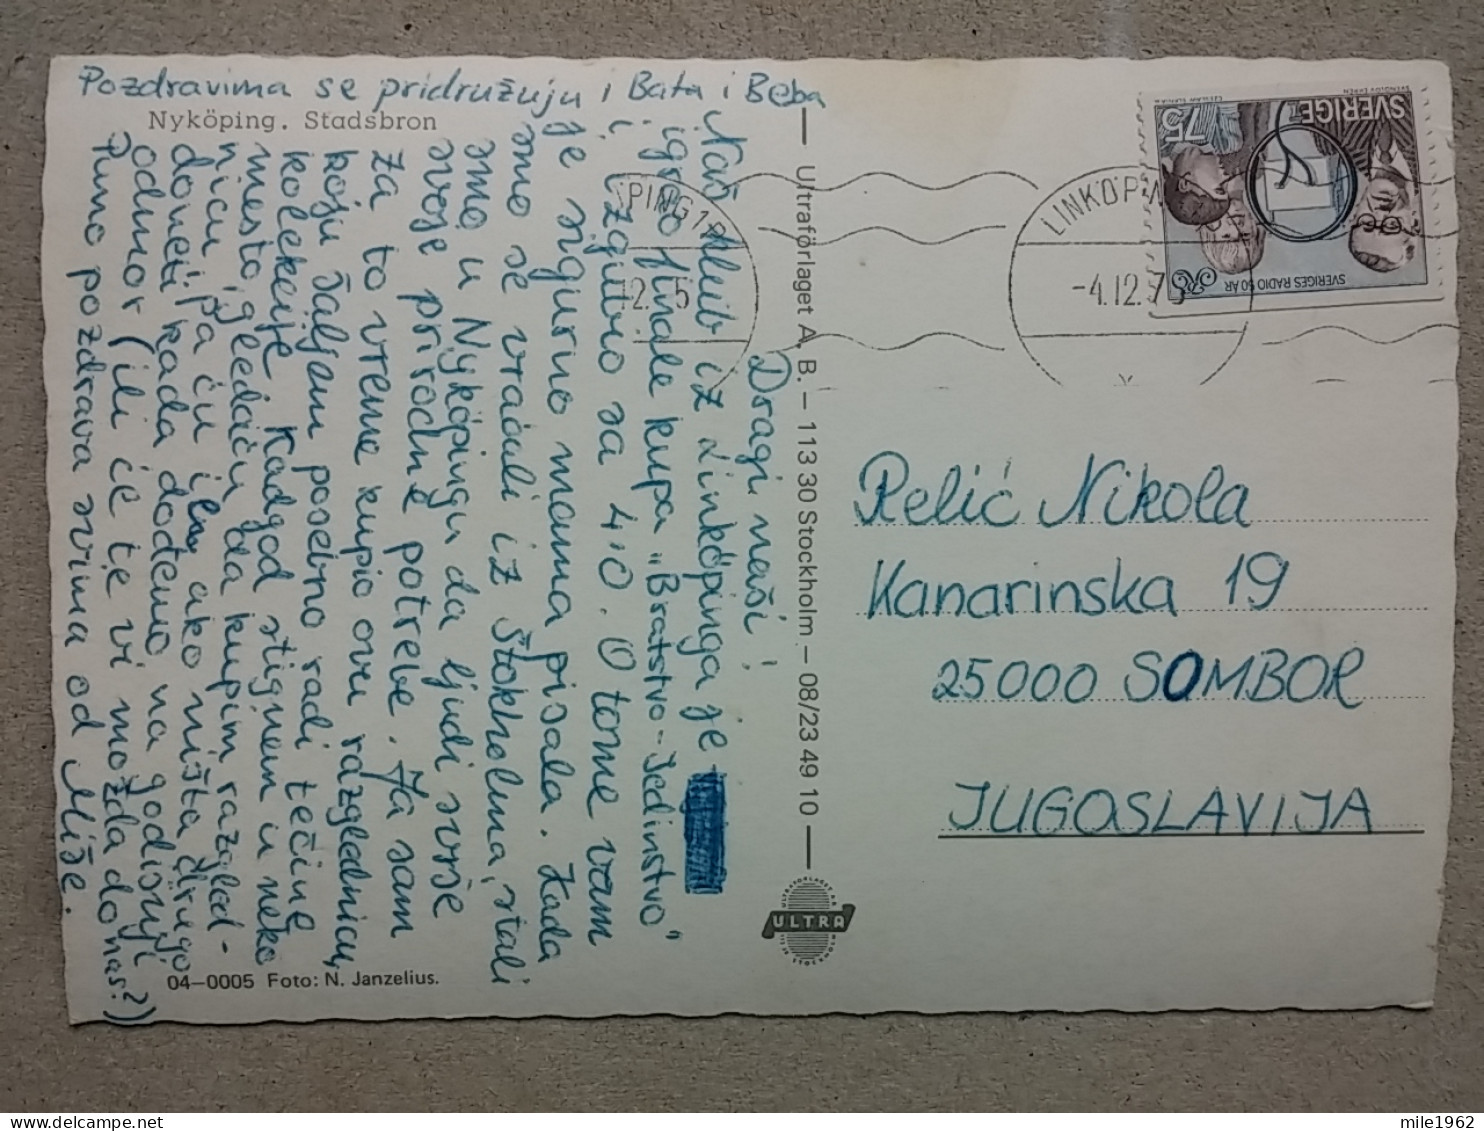 Pozdravima se pridružuju i Bata i Beba
Nyköping. Stadsbron
Dragi naši!
Naš klub iz Linköpinga je
igrao finale kupa „Bratstvo-Jedinstvo"
i izgubio sa 4:0. O tome vam
je sigurno mama pisala. Kada
smo se vraćali iz Štokholma, stali
smo u Nyköpingu da ljudi svrše
svoje prirodne potrebe. Ja sam
za to vreme kupio ovu razglednicu,
koju šaljem posebno radi tečine
kolekcije. Kadgod stignem u neko
mesto, gledaću da kupim razgled-
nicu pa ću ili, ako ništa drugo
doneti kada dođemo na godišnji
odmor (ili će te vi možda do nas?)
Puno pozdrava svima od Miše.
04–0005 Foto: N. Janzelius.
Ultraförlaget A.B. – 113 30 Stockholm – 08/23 49 10
ULTRA
PING 1
LINKÖPIN
-4.12.75
SVERIGE
75
SVERIGES RADIO 50 ÅR
Relić Nikola
Kanarinska 19
25000 SOMBOR
JUGOSLAVIJA
mile1962